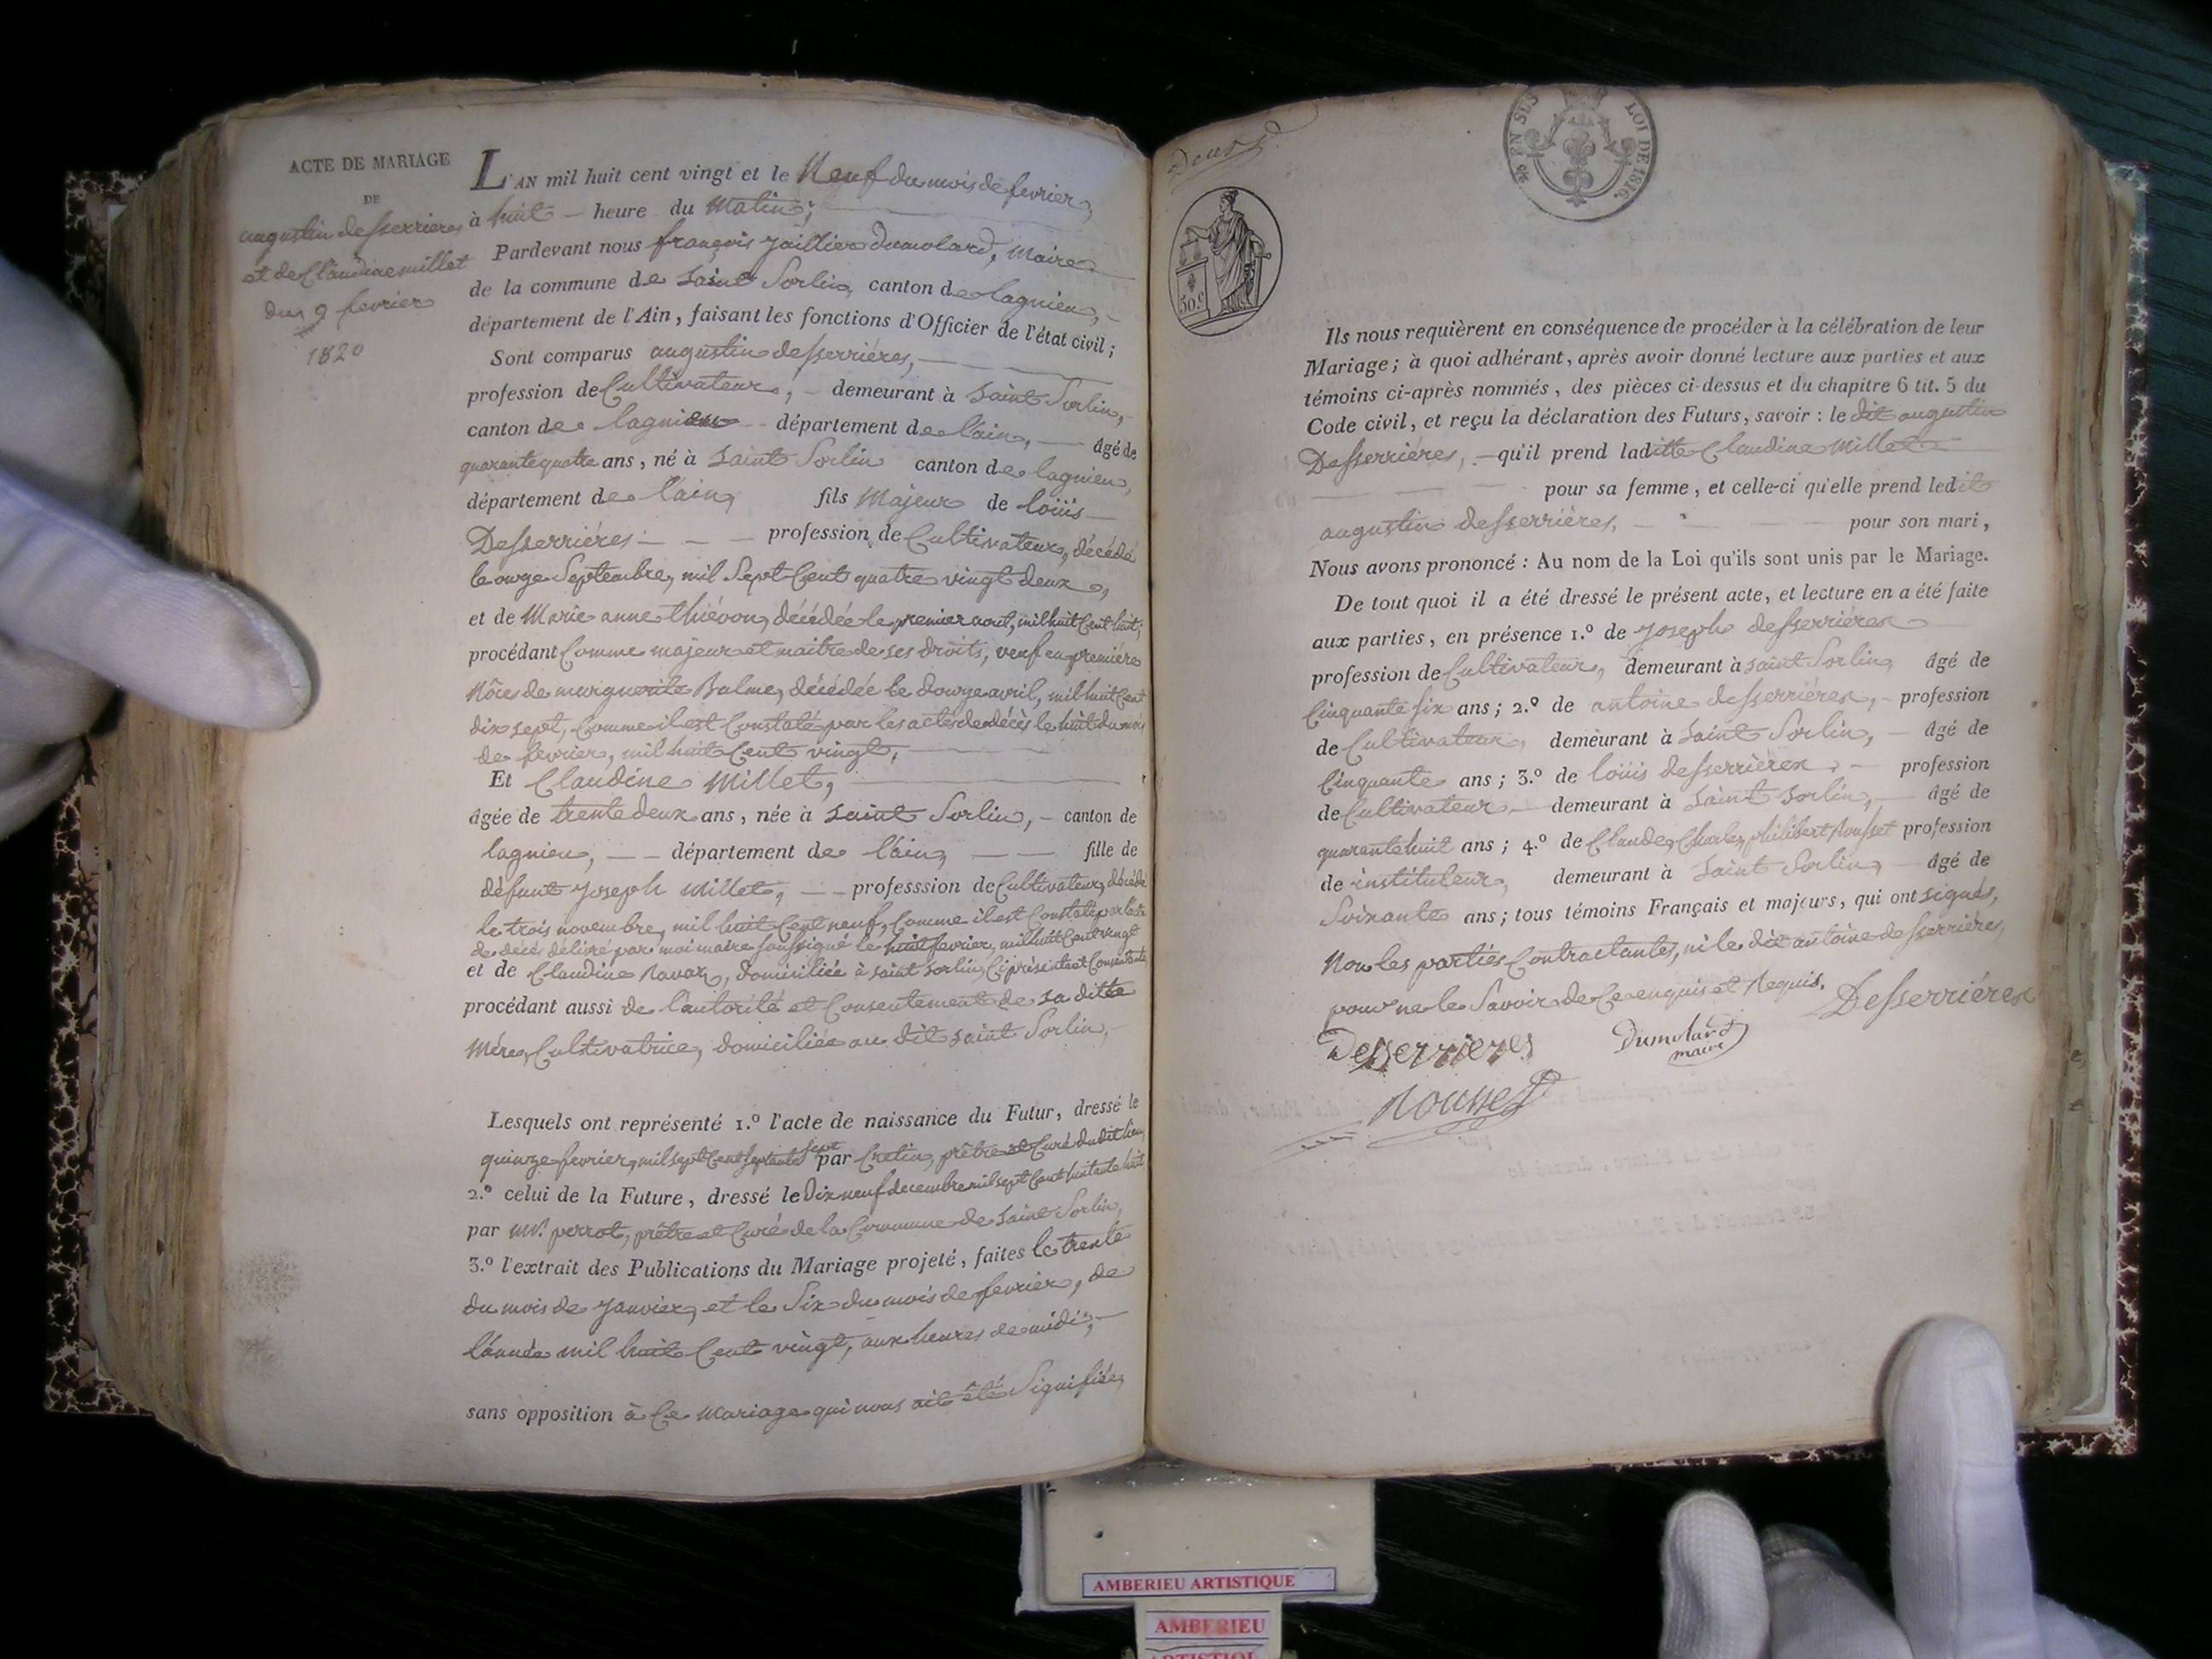 ACTE DE MARIAGE
DE
augustin desserrieres
et de Claudine millet
du 9 fevrier
1820
L'AN mil huit cent vingt et le Neuf du mois de fevrier,
à huit heure du Matin;
Pardevant nous françois Jaillier dumolard, maire
de la commune de Saint Sorlin, canton de lagnieu,
département de l'Ain, faisant les fonctions d'Officier de l'état civil;
Sont comparus augustin desserriéres,
profession de Cultivateur, demeurant à Saint Sorlin,
canton de lagnieu département de l'ain, âgé de
quarante quatre ans, né à Saint Sorlin canton de lagnieu,
département de l'ain, fils Majeur de loüis
Desserriéres profession de Cultivateur, décédé
le onze Septembre, mil Sept Cent quatre vingt deux,
et de Marie anne thiévon, décédée le premier aout, mil huit Cent huit,
procédant Comme majeur et maitre de ses droits, veuf en premiére
Nôces de marguerite Balme, décédée le douze avril, mil huit Cent
dix sept, Comme il est Constaté par les actes de décès le huit du mois
de fevrier, mil huit Cent vingt,
Et Claudine Millet,
âgée de trente deux ans, née à Saint Sorlin, canton de
lagnieu, département de l'ain, fille de
défunt Joseph Millet, professsion de Cultivateur, décédé
le trois novembre, mil huit Cent neuf, Comme il est Constaté par l'acte
de décé délivré par moi maire soussigné le huit fevrier, mil huit Cent vingt
et de Claudine Ravat, domiciliée à saint Sorlin, Ci présente et Consentante
procédant aussi de l'autorité et Consentement de sa ditte
Mére, Cultivatrice, domiciliée au dit saint Sorlin,
Lesquels ont représenté 1.º l'acte de naissance du Futur, dressé le
quinze fevrier, mil sept Cent septante sept par Cretin, prêtre et Curé du dit lieu,
2.º celui de la Future, dressé le Dix neuf decembre mil sept Cent huitante huit
par Mr. perrot, prêtre et Curé de la Commune de Saint Sorlin,
3.º l'extrait des Publications du Mariage projeté, faites le trente
du mois de Janvier, et le Six du mois de fevrier, de
l'année mil huit Cent vingt, aux heures de midi,
sans opposition à Ce Mariage qui nous ait été Signifiée,
Deux
EN SUS LOI DE 1816.
50.c
Ils nous requièrent en conséquence de procéder à la célébration de leur
Mariage; à quoi adhérant, après avoir donné lecture aux parties et aux
témoins ci-après nommés, des pièces ci-dessus et du chapitre 6 tit. 5 du
Code civil, et reçu la déclaration des Futurs, savoir : le dit augustin
Desserriéres, qu'il prend laditte Claudine Millet
pour sa femme, et celle-ci qu'elle prend ledit
augustin desserriéres, pour son mari,
Nous avons prononcé : Au nom de la Loi qu'ils sont unis par le Mariage.
De tout quoi il a été dressé le présent acte, et lecture en a été faite
aux parties, en présence 1.º de Joseph desserriéres
profession de Cultivateur, demeurant à saint Sorlin, âgé de
Cinquante six ans; 2.º de antoine desserriéres, profession
de Cultivateur, demeurant à Saint Sorlin, âgé de
Cinquante ans; 3.º de loüis desserriéres, profession
de Cultivateur demeurant à Saint Sorlin, âgé de
quarante huit ans; 4.º de Claude, Charles, philibert Rousset profession
de instituteur, demeurant à Saint Sorlin, âgé de
Soixante ans; tous témoins Français et majeurs, qui ont signés,
Non les parties Contractantes, ni le dit antoine desserriéres,
pour ne le Savoir de Ce enquis et Requis.
Desserriéres
Desserrieres
Dumolard
maire
Rousset
AMBERIEU ARTISTIQUE
AMBERIEU
ARTISTIQUE